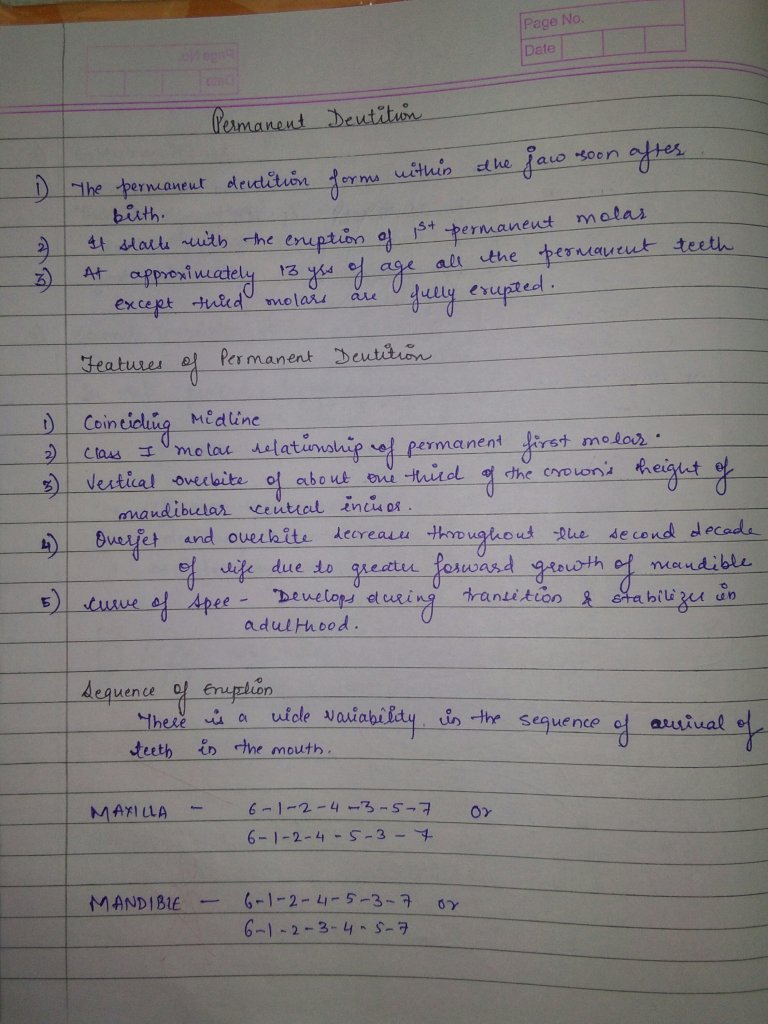 Page No.
Date
Permanent Dentition
1) The permanent dentition forms within the jaw soon after
birth.
2) It starts with the eruption of 1st permanent molar
3) At approximately 13 yrs of age all the permanent teeth
except third molars are fully erupted.
Features of Permanent Dentition
1) Coinciding Midline
2) Class I molar relationship of permanent first molar.
3) Vertical overbite of about one third of the crown's height of
mandibular central incisor.
4) Overjet and overbite decreases throughout the second decade
of life due to greater forward growth of mandible
5) Curve of Spee - Develops during transition & stabilizes in
adulthood.
Sequence of Eruption
There is a wide variability in the sequence of arrival of
teeth in the mouth.
MAXILLA - 6-1-2-4-3-5-7 Or
6-1-2-4-5-3-7
MANDIBLE - 6-1-2-4-5-3-7 or
6-1-2-3-4-5-7